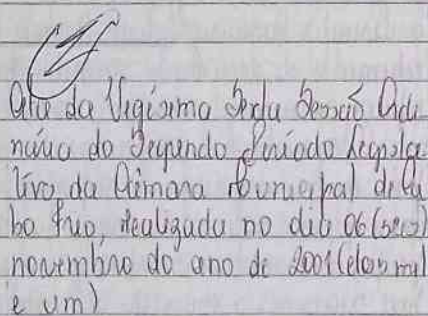 Ata da Vigésima Sexta Sessão Ordi
nária do Segundo Período Legisla
tivo da Câmara Municipal de Ca
bo Frio, realizada no dia 06 (seis)
novembro do ano de 2001 (dois mil
e um)